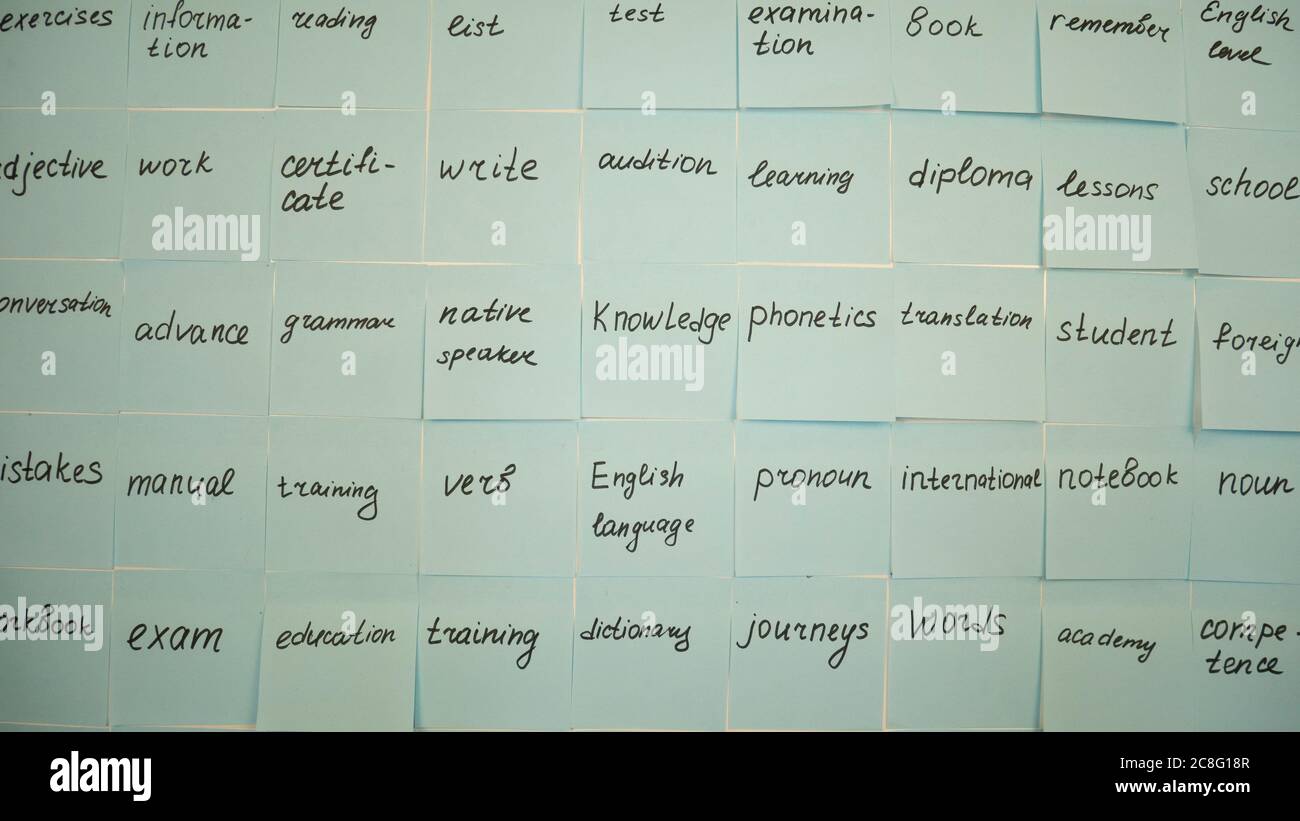 exercises
informa-
tion
reading
list
test
examina-
tion
book
remember
English
level
djective
work
certifi-
cate
write
audition
learning
diploma
lessons
school
onversation
advance
grammar
native
speaker
Knowledge
phonetics
translation
student
foreign
istakes
manual
training
verb
English
language
pronoun
international
notebook
noun
rkbook
exam
education
training
dictionary
journeys
words
academy
compe-
tence
a
alamy
Image ID: 2C8G18R
www.alamy.com